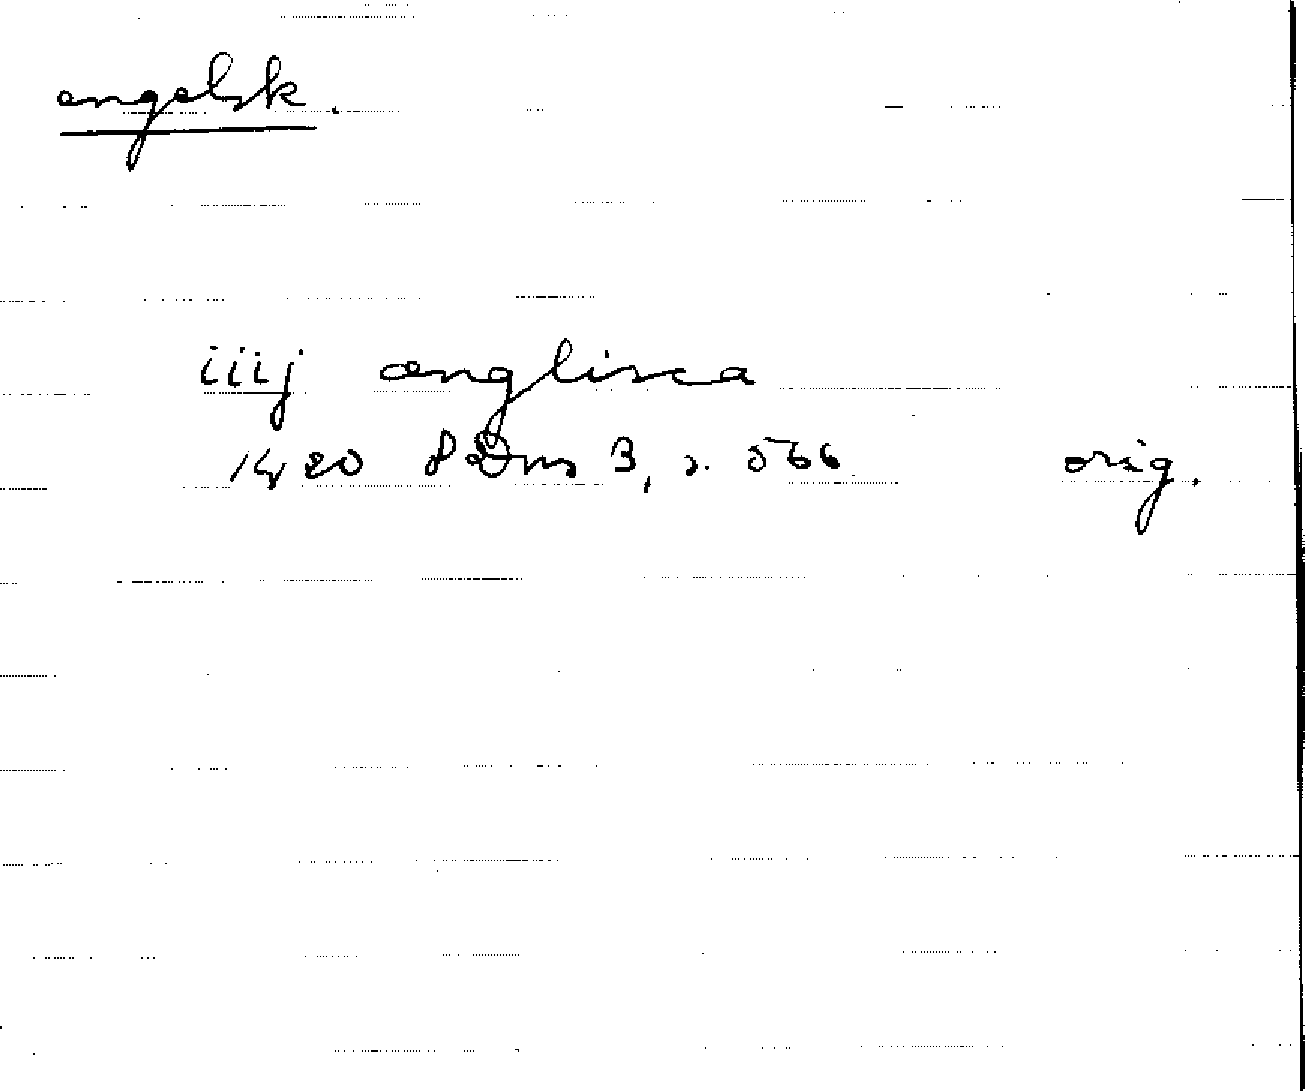 engelsk.
iiij ænglisca
1420 SDns 3, s. 566 orig.